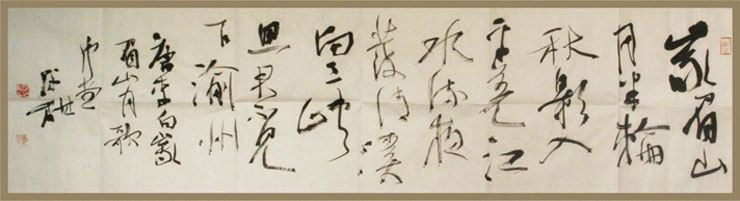 峩眉山
月半輪
秋影入
平羌江
水流夜
發清溪
向三峽
思君不見
下渝州
唐李白峩
眉山月歌